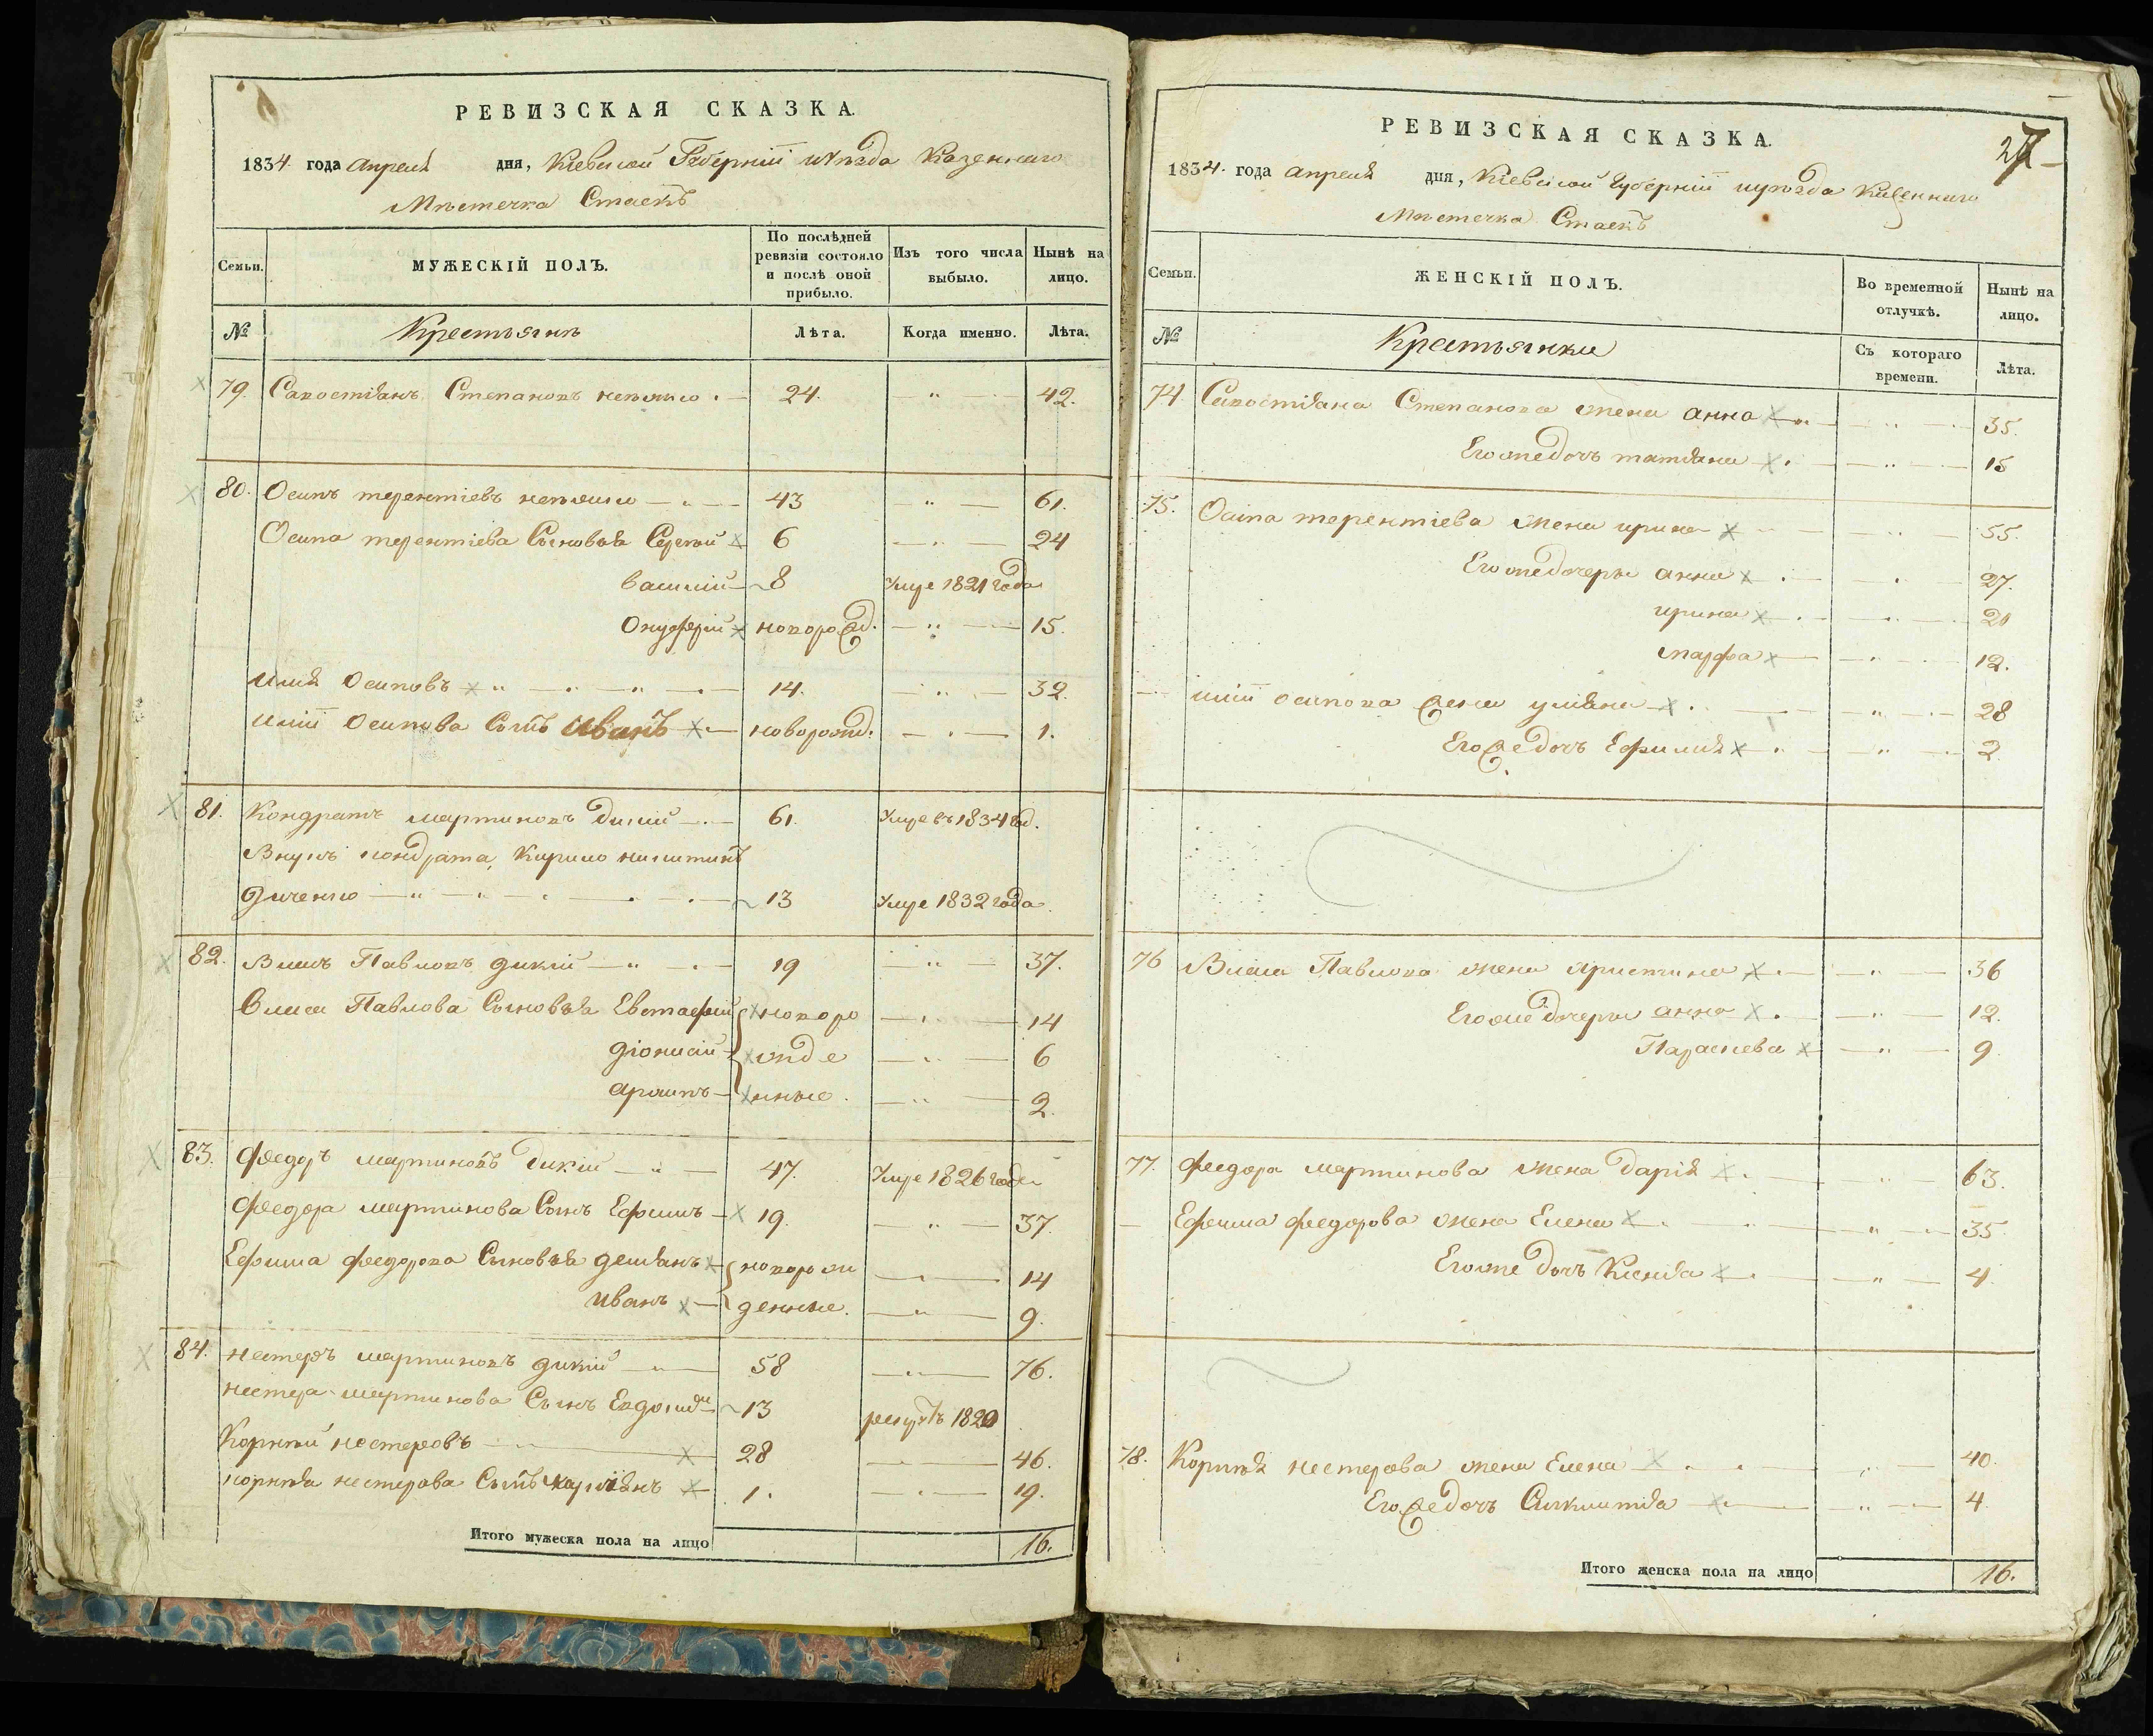 РЕВИЗСКАЯ СКАЗКА.
1834. года апреля дня, Кіевской Губерніи и уѣзда Казеннаго
Мѣстечка Стаекъ
Семьи.
МУЖЕСКІЙ ПОЛЪ.
По послѣдней ревизіи состояло и послѣ оной прибыло.
Изъ того числа выбыло.
Нынѣ на лицо.
№
Крестьянѣ
Лѣта.
Когда именно.
Лѣта.
79. Савостіянъ Степановъ 24. 42.
80. Осипъ терентіевъ 43 61.
Осипа терентіева Сыновья Сергѣй 6 24
Василій 8 Умре 1821 года
Онуфрій новорожд. 15.
Илія Осиповъ 14. 32.
Иліи Осипова Сынъ Иванъ новорожд. 1.
81. Кондратъ мартиновъ Дикій 61. Умре въ 1834 год.
Внукъ кондрата, Кирило никитинъ
Диченко 13 Умре 1832 года.
82. Власъ Павловъ дикій 19 37.
Власа Павлова Сыновья Евстафій новоро 14
діонисій жде 6
архипъ нные. 2.
83. Федоръ мартиновъ дикій 47. Умре 1826 года
Федора мартинова Сынъ Ефимъ 19. 37.
Ефима федорова Сыновья демянъ новорож 14
Иванъ денные. 9.
84. нестеръ мартиновъ дикій 58 76.
нестера мартинова Сынъ 13 рекрутъ 1820
Корнѣй нестеровъ 28 46.
корнѣя нестерова Сынъ 1. 19.
Итого мужеска пола на лицо 16.
РЕВИЗСКАЯ СКАЗКА.
27
1834. года апреля дня, Кіевской Губерніи и уѣзда Казеннаго
Мѣстечка Стаекъ
Семьи.
ЖЕНСКІЙ ПОЛЪ.
Во временной отлучкѣ.
Нынѣ на лицо.
№
Крестьянки
Съ котораго времени.
Лѣта.
74. Савостіяна Степанова жена анна 35.
Его же дочь татіяна 15
75. Осипа терентіева жена ирина 55.
Его же дочери анна 27.
ирина 20
марфа 12.
иліи осипова жена уліяна 28
Его же дочь Ефимія 2
76 Власа Павлова жена христина 36
Его же дочери анна 12.
Параскева 9
77. Федора мартинова жена Дарія 63.
Ефима федорова жена Елена 35.
Его же дочь Ксенія 4.
78. Корнѣя нестерова жена Елена 40.
Его же дочь 4
Итого женска пола на лицо 16.